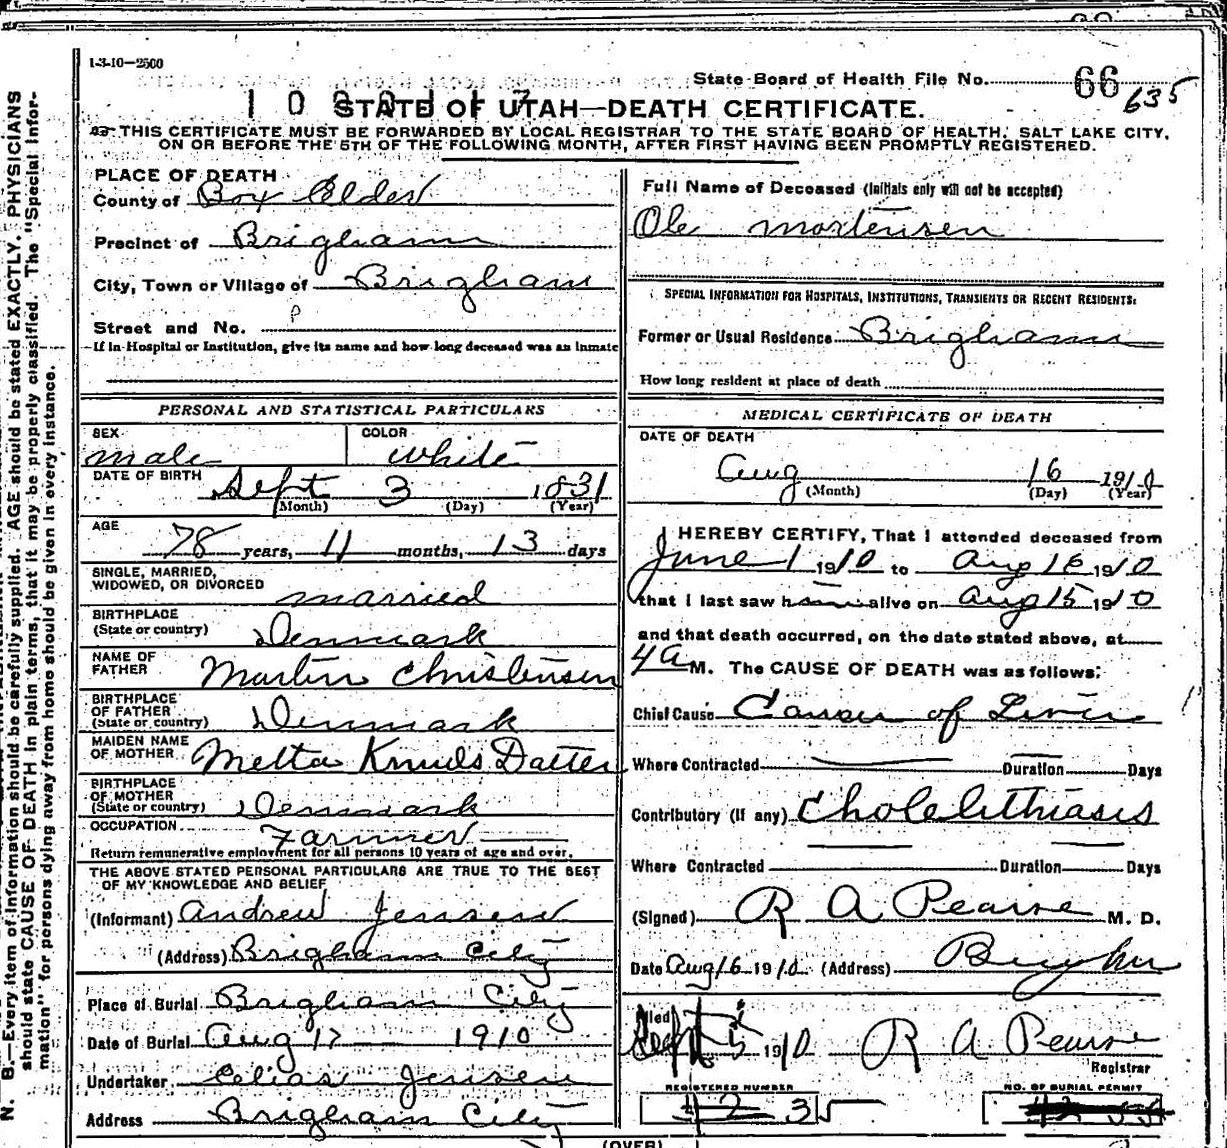 1-3-10—2500
State Board of Health File No. 66 635
STATE OF UTAH—DEATH CERTIFICATE.
THIS CERTIFICATE MUST BE FORWARDED BY LOCAL REGISTRAR TO THE STATE BOARD OF HEALTH, SALT LAKE CITY,
ON OR BEFORE THE 5TH OF THE FOLLOWING MONTH, AFTER FIRST HAVING BEEN PROMPTLY REGISTERED.
N. B.—Every item of information should be carefully supplied. AGE should be stated EXACTLY. PHYSICIANS
should state CAUSE OF DEATH in plain terms, that it may be properly classified. The "Special Infor-
mation" for persons dying away from home should be given in every instance.
PLACE OF DEATH
County of Box Elder
Precinct of Brigham
City, Town or Village of Brigham
Street and No.
If in Hospital or Institution, give its name and how long deceased was an inmate
PERSONAL AND STATISTICAL PARTICULARS
SEX COLOR
male white
DATE OF BIRTH Sept 3 1831
(Month) (Day) (Year)
AGE
78 years, 11 months, 13 days
SINGLE, MARRIED,
WIDOWED, OR DIVORCED married
BIRTHPLACE
(State or country) Denmark
NAME OF
FATHER Martin Christensen
BIRTHPLACE
OF FATHER
(State or country) Denmark
MAIDEN NAME
OF MOTHER Metta Knuds Datter
BIRTHPLACE
OF MOTHER
(State or country) Denmark
OCCUPATION Farmer
Return remunerative employment for all persons 10 years of age and over.
THE ABOVE STATED PERSONAL PARTICULARS ARE TRUE TO THE BEST
OF MY KNOWLEDGE AND BELIEF
(Informant) Andrew Jensen
(Address) Brigham City
Place of Burial Brigham City
Date of Burial Aug 17 1910
Undertaker Jensen
Address Brigham City
Full Name of Deceased (Initials only will not be accepted)
Ole Mortensen
SPECIAL INFORMATION FOR HOSPITALS, INSTITUTIONS, TRANSIENTS OR RECENT RESIDENTS:
Former or Usual Residence Brigham
How long resident at place of death
MEDICAL CERTIFICATE OF DEATH
DATE OF DEATH
Aug 16 1910
(Month) (Day) (Year)
I HEREBY CERTIFY, That I attended deceased from
June 1 1910 to Aug 16 1910
that I last saw him alive on Aug 15 1910
and that death occurred, on the date stated above, at
4 a M. The CAUSE OF DEATH was as follows:
Chief Cause Cancer of Liver
Where Contracted Duration Days
Contributory (if any) Cholelithiasis
Where Contracted Duration Days
(Signed) R A Pearse M. D.
Date Aug 16 1910 (Address) Brigham
Filed Sept 5 1910 R A Pearse
Registrar
REGISTERED NUMBER NO. OF BURIAL PERMIT
(OVER)